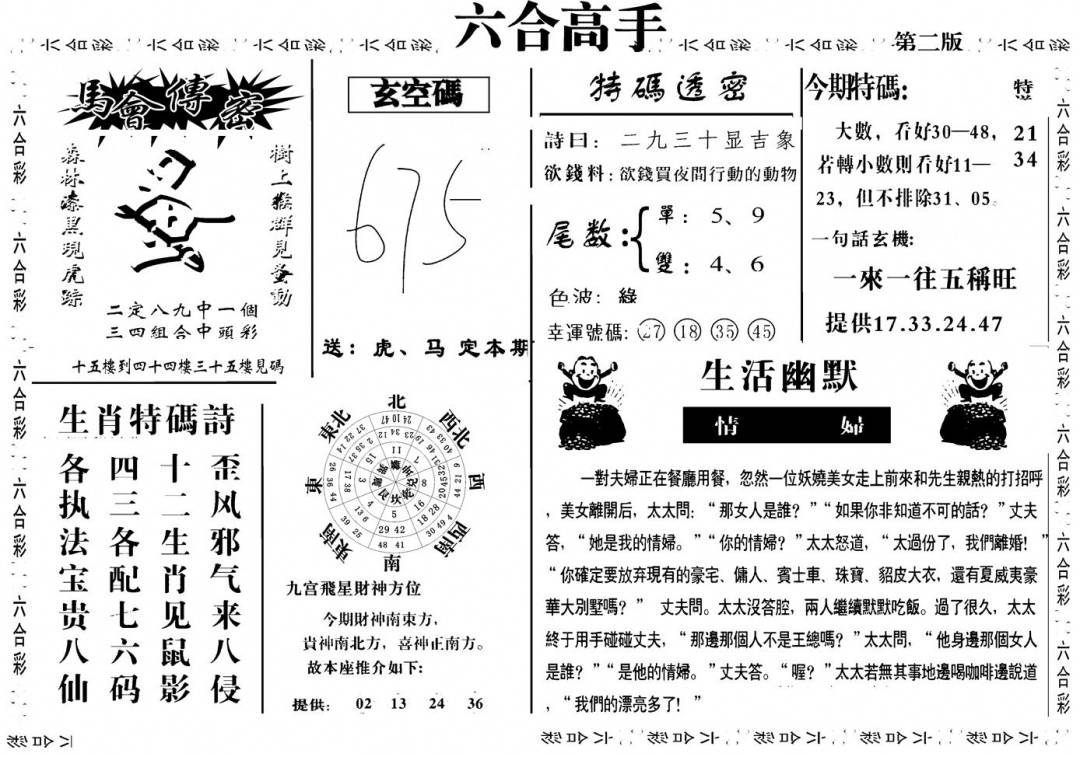 六合高手
第二版
馬會傳密
森林漆黑現虎踪
樹上猴群見蚤動
二定八九中一個
三四組合中頭彩
十五樓到四十四樓三十五樓見碼
玄空碼
675
送：虎、马 定本期
特碼透密
詩曰：二九三十显吉象
欲錢料：欲錢買夜間行動的動物
尾数：
單：5、9
雙：4、6
色波：綠
幸運號碼：27 18 35 45
今期特碼：
大數，看好30—48，
若轉小數則看好11—
23，但不排除31、05。
特
21
34
一句話玄機：
一來一往五稱旺
提供17.33.24.47
生肖特碼詩
歪风邪气来八侵
十二生肖见鼠影
四三各配七六码
各执法宝贵八仙
北
西北
西
西南
南
東南
東
東北
九宫飛星財神方位
今期財神南東方，
貴神南北方，喜神正南方。
故本座推介如下：
提供： 02 13 24 36
生活幽默
情婦
一對夫婦正在餐廳用餐，忽然一位妖嬈美女走上前來和先生親熱的打招呼
，美女離開后，太太問：“那女人是誰？”“如果你非知道不可的話？”丈夫
答，“她是我的情婦。”“你的情婦？”太太怒道，“太過份了，我們離婚！”
“你確定要放弃現有的豪宅、傭人、賓士車、珠寶、貂皮大衣，還有夏威夷豪
華大別墅嗎？” 丈夫問。太太沒答腔，兩人繼續默默吃飯。過了很久，太太
終于用手碰碰丈夫，“那邊那個人不是王總嗎？”太太問，“他身邊那個女人
是誰？”“是他的情婦。”丈夫答。“喔？”太太若無其事地邊喝咖啡邊說道
，“我們的漂亮多了！”